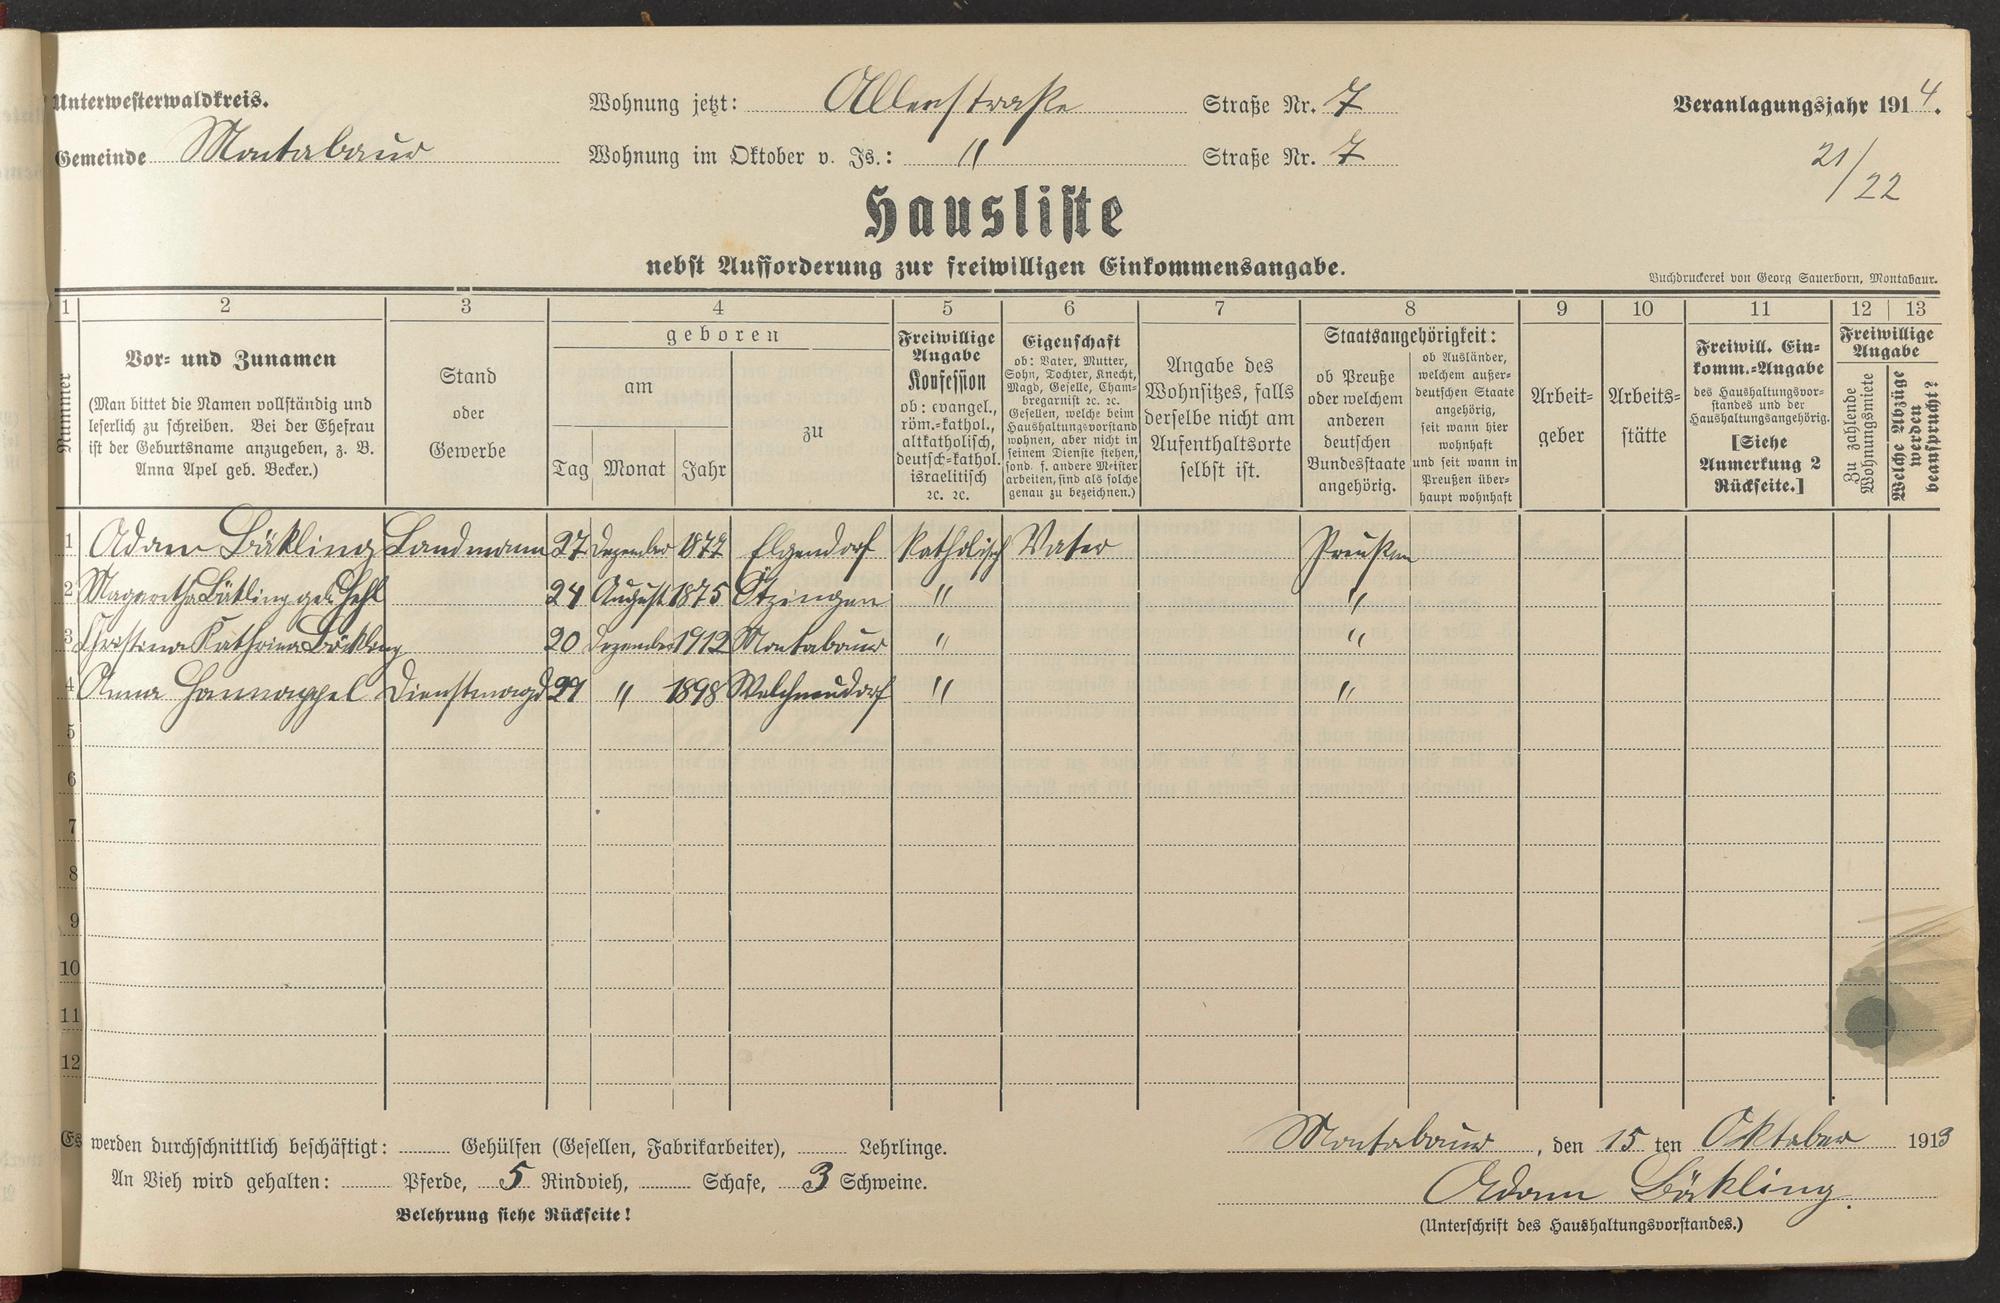 Unterwesterwaldkreis.
Wohnung jetzt: Allerstraße Straße Nr. 7
Veranlagungsjahr 1914.
Gemeinde Montabaur
Wohnung im Oktober v. Js.: " Straße Nr. 7
21/22
Hausliste
nebst Aufforderung zur freiwilligen Einkommensangabe.
Buchdruckerei von Georg Sauerborn, Montabaur.
1 2 3 4 5 6 7 8 9 10 11 12 13
Nummer
Vor- und Zunamen
(Man bittet die Namen vollständig und
leserlich zu schreiben. Bei der Ehefrau
ist der Geburtsname anzugeben, z. B.
Anna Apel geb. Becker.)
Stand
oder
Gewerbe
geboren
am
Tag Monat Jahr
zu
Freiwillige
Angabe
Konfession
ob: evangel.,
röm.-kathol.,
altkatholisch,
deutsch-kathol.
israelitisch
ꝛc. ꝛc.
Eigenschaft
ob: Vater, Mutter,
Sohn, Tochter, Knecht,
Magd, Geselle, Cham-
bregarnist ꝛc. ꝛc.
Gesellen, welche beim
Haushaltungsvorstand
wohnen, aber nicht in
seinem Dienste stehen,
sond. f. andere Meister
arbeiten, sind als solche
genau zu bezeichnen.)
Angabe des
Wohnsitzes, falls
derselbe nicht am
Aufenthaltsorte
selbst ist.
Staatsangehörigkeit:
ob Preuße
oder welchem
anderen
deutschen
Bundesstaate
angehörig.
ob Ausländer,
welchem außer-
deutschen Staate
angehörig,
seit wann hier
wohnhaft
und seit wann in
Preußen über-
haupt wohnhaft
Arbeit-
geber
Arbeits-
stätte
Freiwill. Ein-
komm.-Angabe
des Haushaltungsvor-
standes und der
Haushaltungsangehörig.
[Siehe
Anmerkung 2
Rückseite.]
Freiwillige
Angabe
Zu zahlende
Wohnungsmiete
Welche Abzüge
werden
beansprucht?
1 Adam Bäkling Landmann 27 Dezember 1872 Elgendorf katholisch Vater Preußen
2 Magaretha Bäkling geb. Hehl 24 August 1875 Ötzingen " "
3 Christina Kathrina Bäkling 20 Dezember 1912 Montabaur " "
4 Anna Hannappel Dienstmagd 27 " 1898 Welschneudorf " "
5
6
7
8
9
10
11
12
Es werden durchschnittlich beschäftigt: Gehülfen (Gesellen, Fabrikarbeiter), Lehrlinge.
An Vieh wird gehalten: Pferde, 5 Rindvieh, Schafe, 3 Schweine.
Belehrung siehe Rückseite!
Montabaur, den 15 ten Oktober 1913
Adam Bäkling.
(Unterschrift des Haushaltungsvorstandes.)